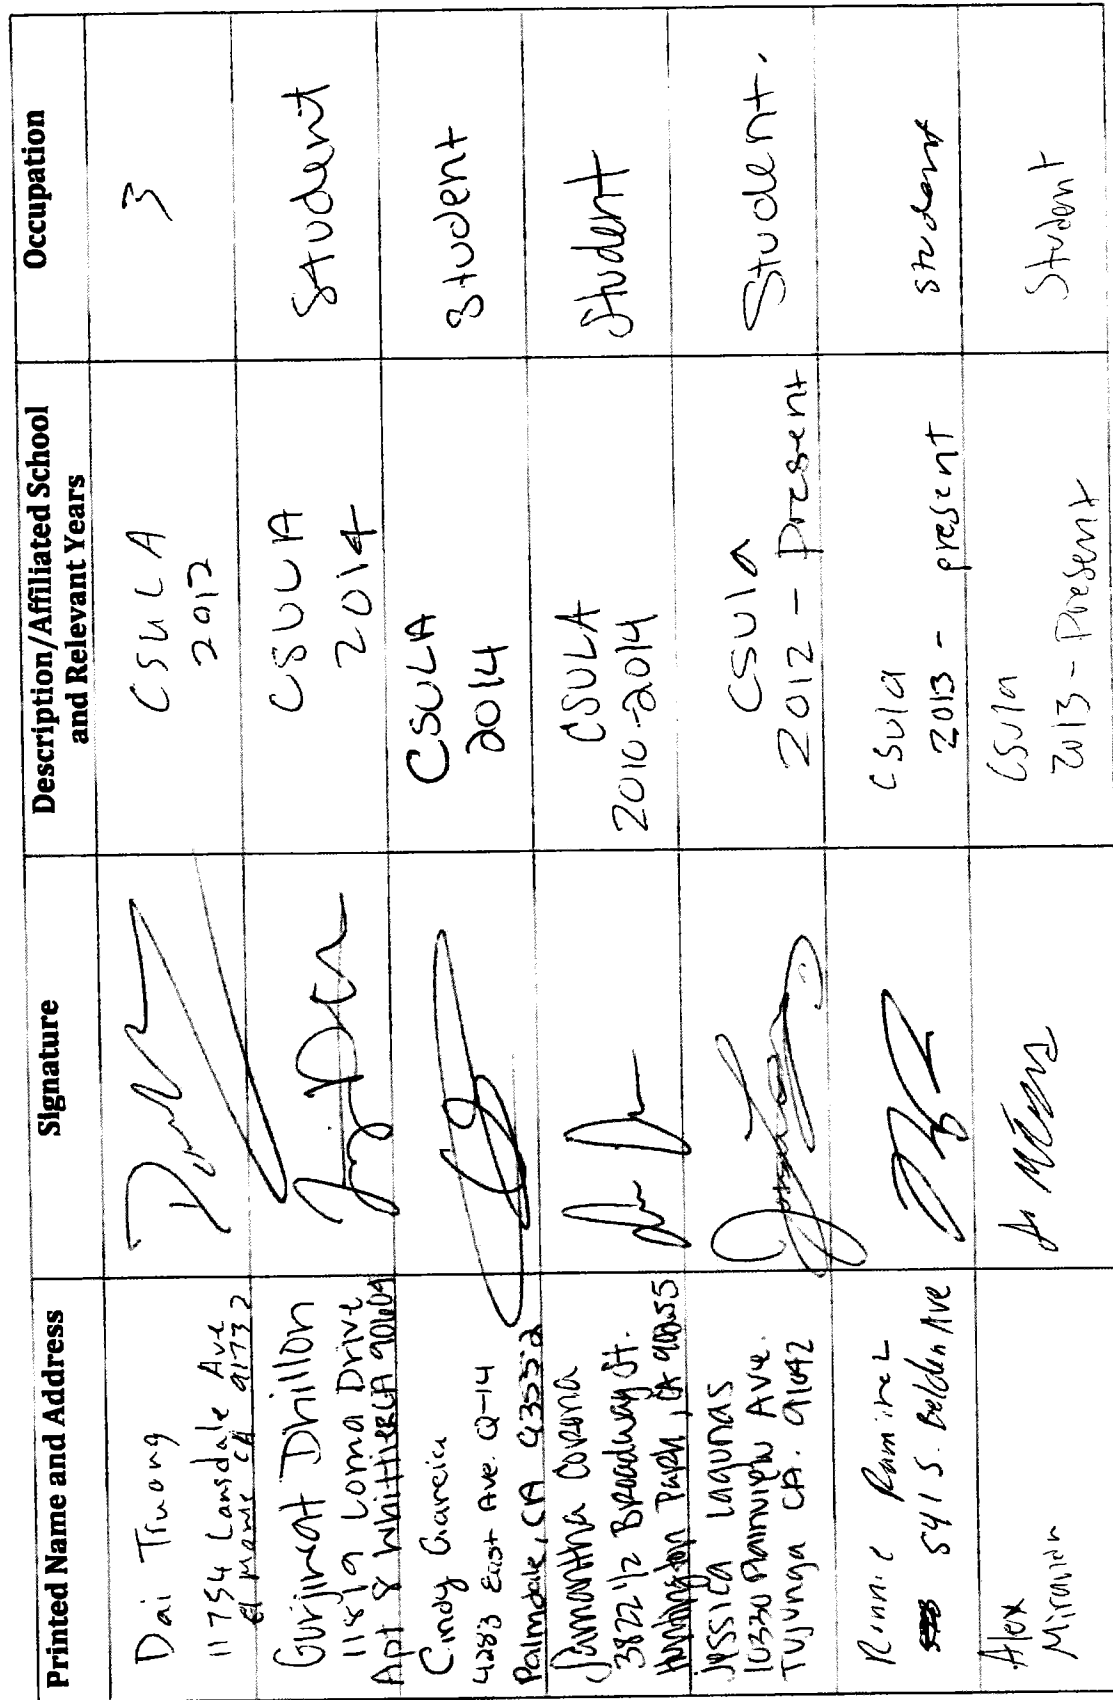 Printed Name and Address
Signature
Description/Affiliated School
and Relevant Years
Occupation
Dai Truong
11754 Lansdale Ave
El Monte CA 91732
CSULA
2012
3
Gurjinat Dhillon
11819 Loma Drive
Apt 8 Whittier CA 90604
CSULA
2014
Student
Cindy Garcia
4283 East Ave. Q-14
Palmdale, CA 93552
CSULA
2014
Student
Samantha Corona
3822 1/2 Broadway St.
Huntington Park, CA 90255
CSULA
2010-2014
Student
Jessica Lagunas
10330 Plainview Ave.
Tujunga CA. 91042
CSULA
2012 - Present
Student.
Ronnie Ramirez
541 S. Belden Ave
CSULA
2013 - present
student
Alex
CSULA
2013 - Present
Student